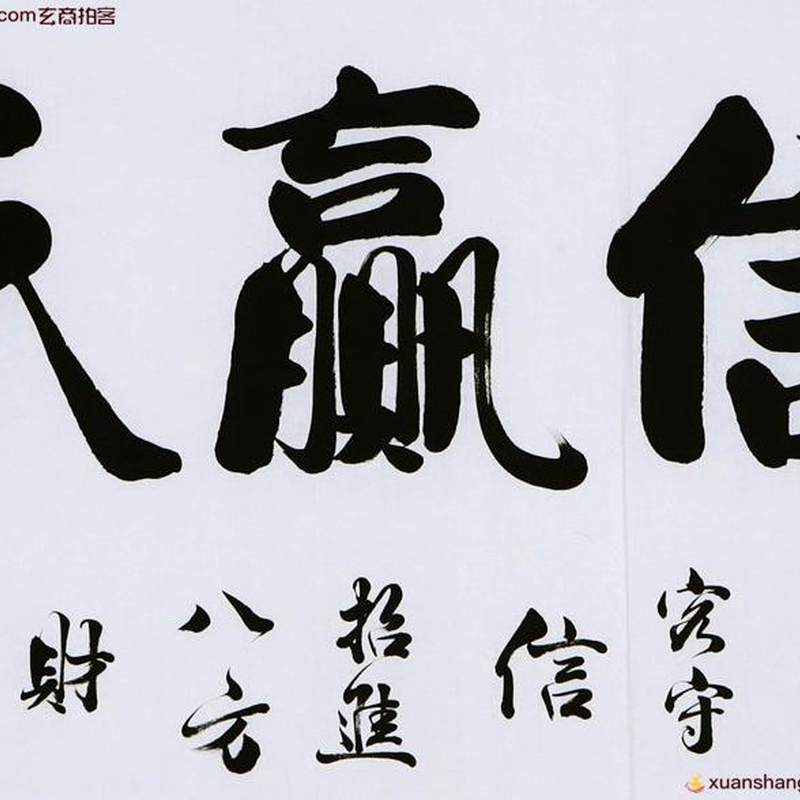 com玄商拍客
信贏
客守
信
招進
八方
財
xuanshang